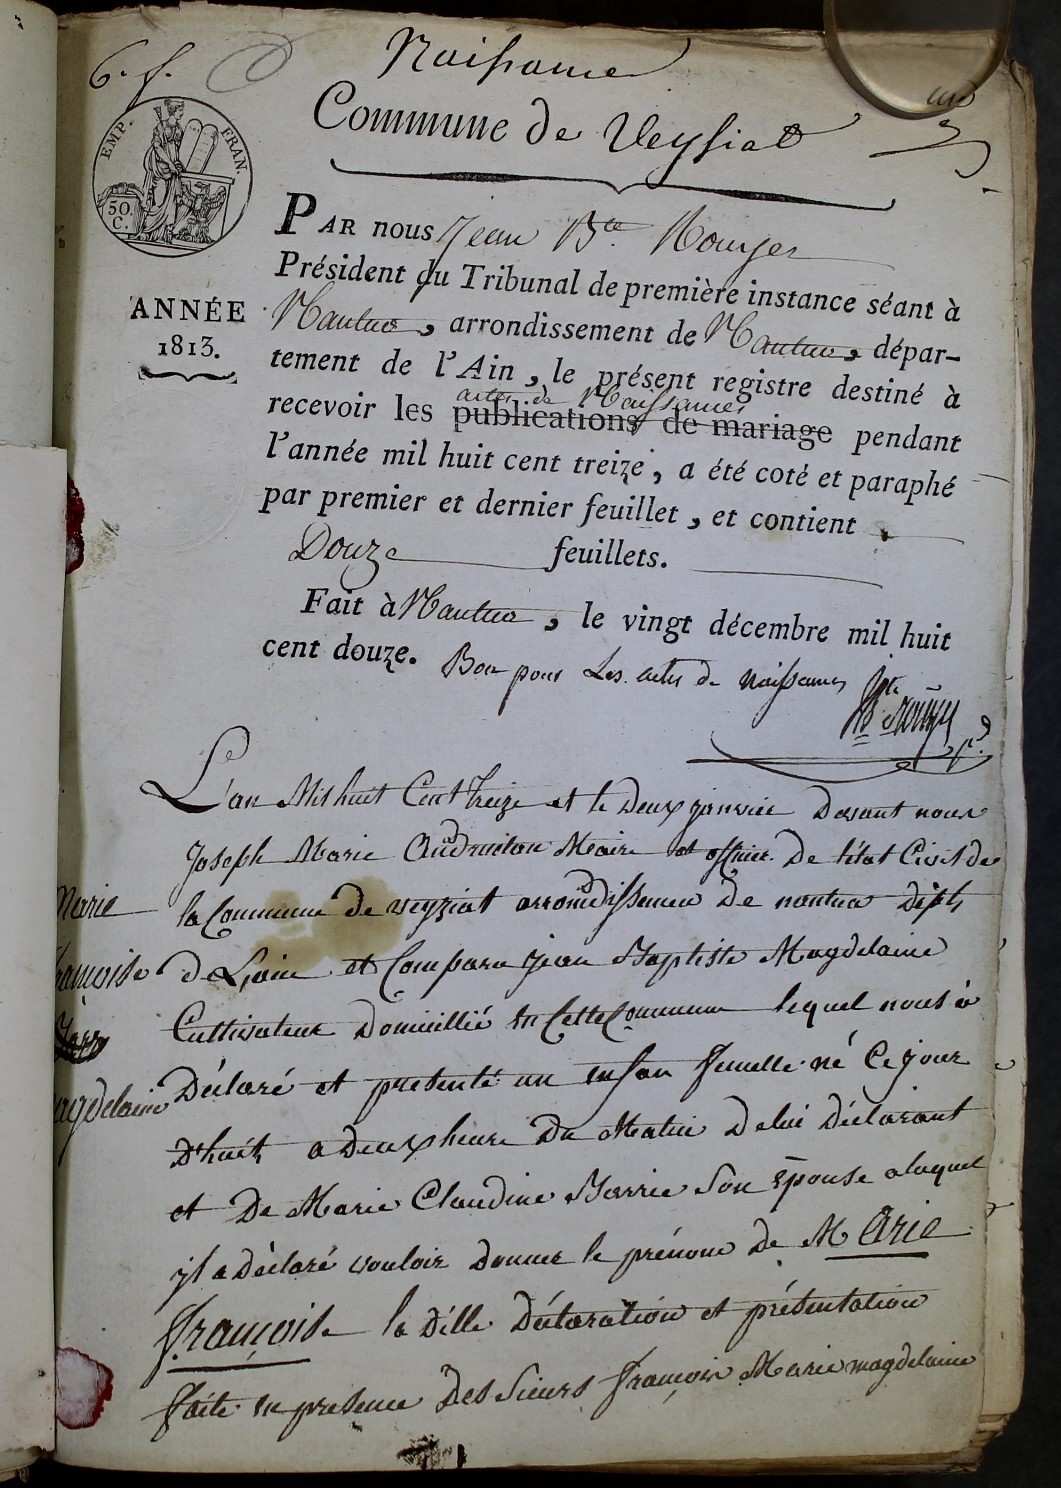 6. f.
Naissance
un
Commune de Veysiat
EMP. FRAN.
50 C.
PAR nous Jean Bte. Rouyer
Président du Tribunal de première instance séant à
ANNÉE
1813.
Nantua, arrondissement de Nantua, dépar-
tement de l'Ain, le présent registre destiné à
actes de Naissances
recevoir les publications de mariage pendant
l'année mil huit cent treize, a été coté et paraphé
par premier et dernier feuillet, et contient
Douze feuillets.
Fait à Nantua, le vingt décembre mil huit
cent douze. Bon pour Les actes de naissances
L'an Mil huit Cent treize et le Deux janvier Devant nous
Joseph Marie Maire et officier De létat Civil de
la Commune de veyziat arrondissemen De nantua Dépt
de L'ain et Comparu jean Baptiste Magdelaine
Cultivateur Domicillié En Cette Commune lequel nous à
Déclaré et présenté un enfan femelle né Ce jour
D'huit a Deux heure Du Matin De lui Déclarant
et De Marie Claudine Barrie Son Epouse alaquel
yl a Déclaré vouloir Donner le prénom De Marie
françoise la Ditte Déclaration et présentation
faite en presence Des Sieurs françois Marie magdelaine
Marie
françoise
magdelaine